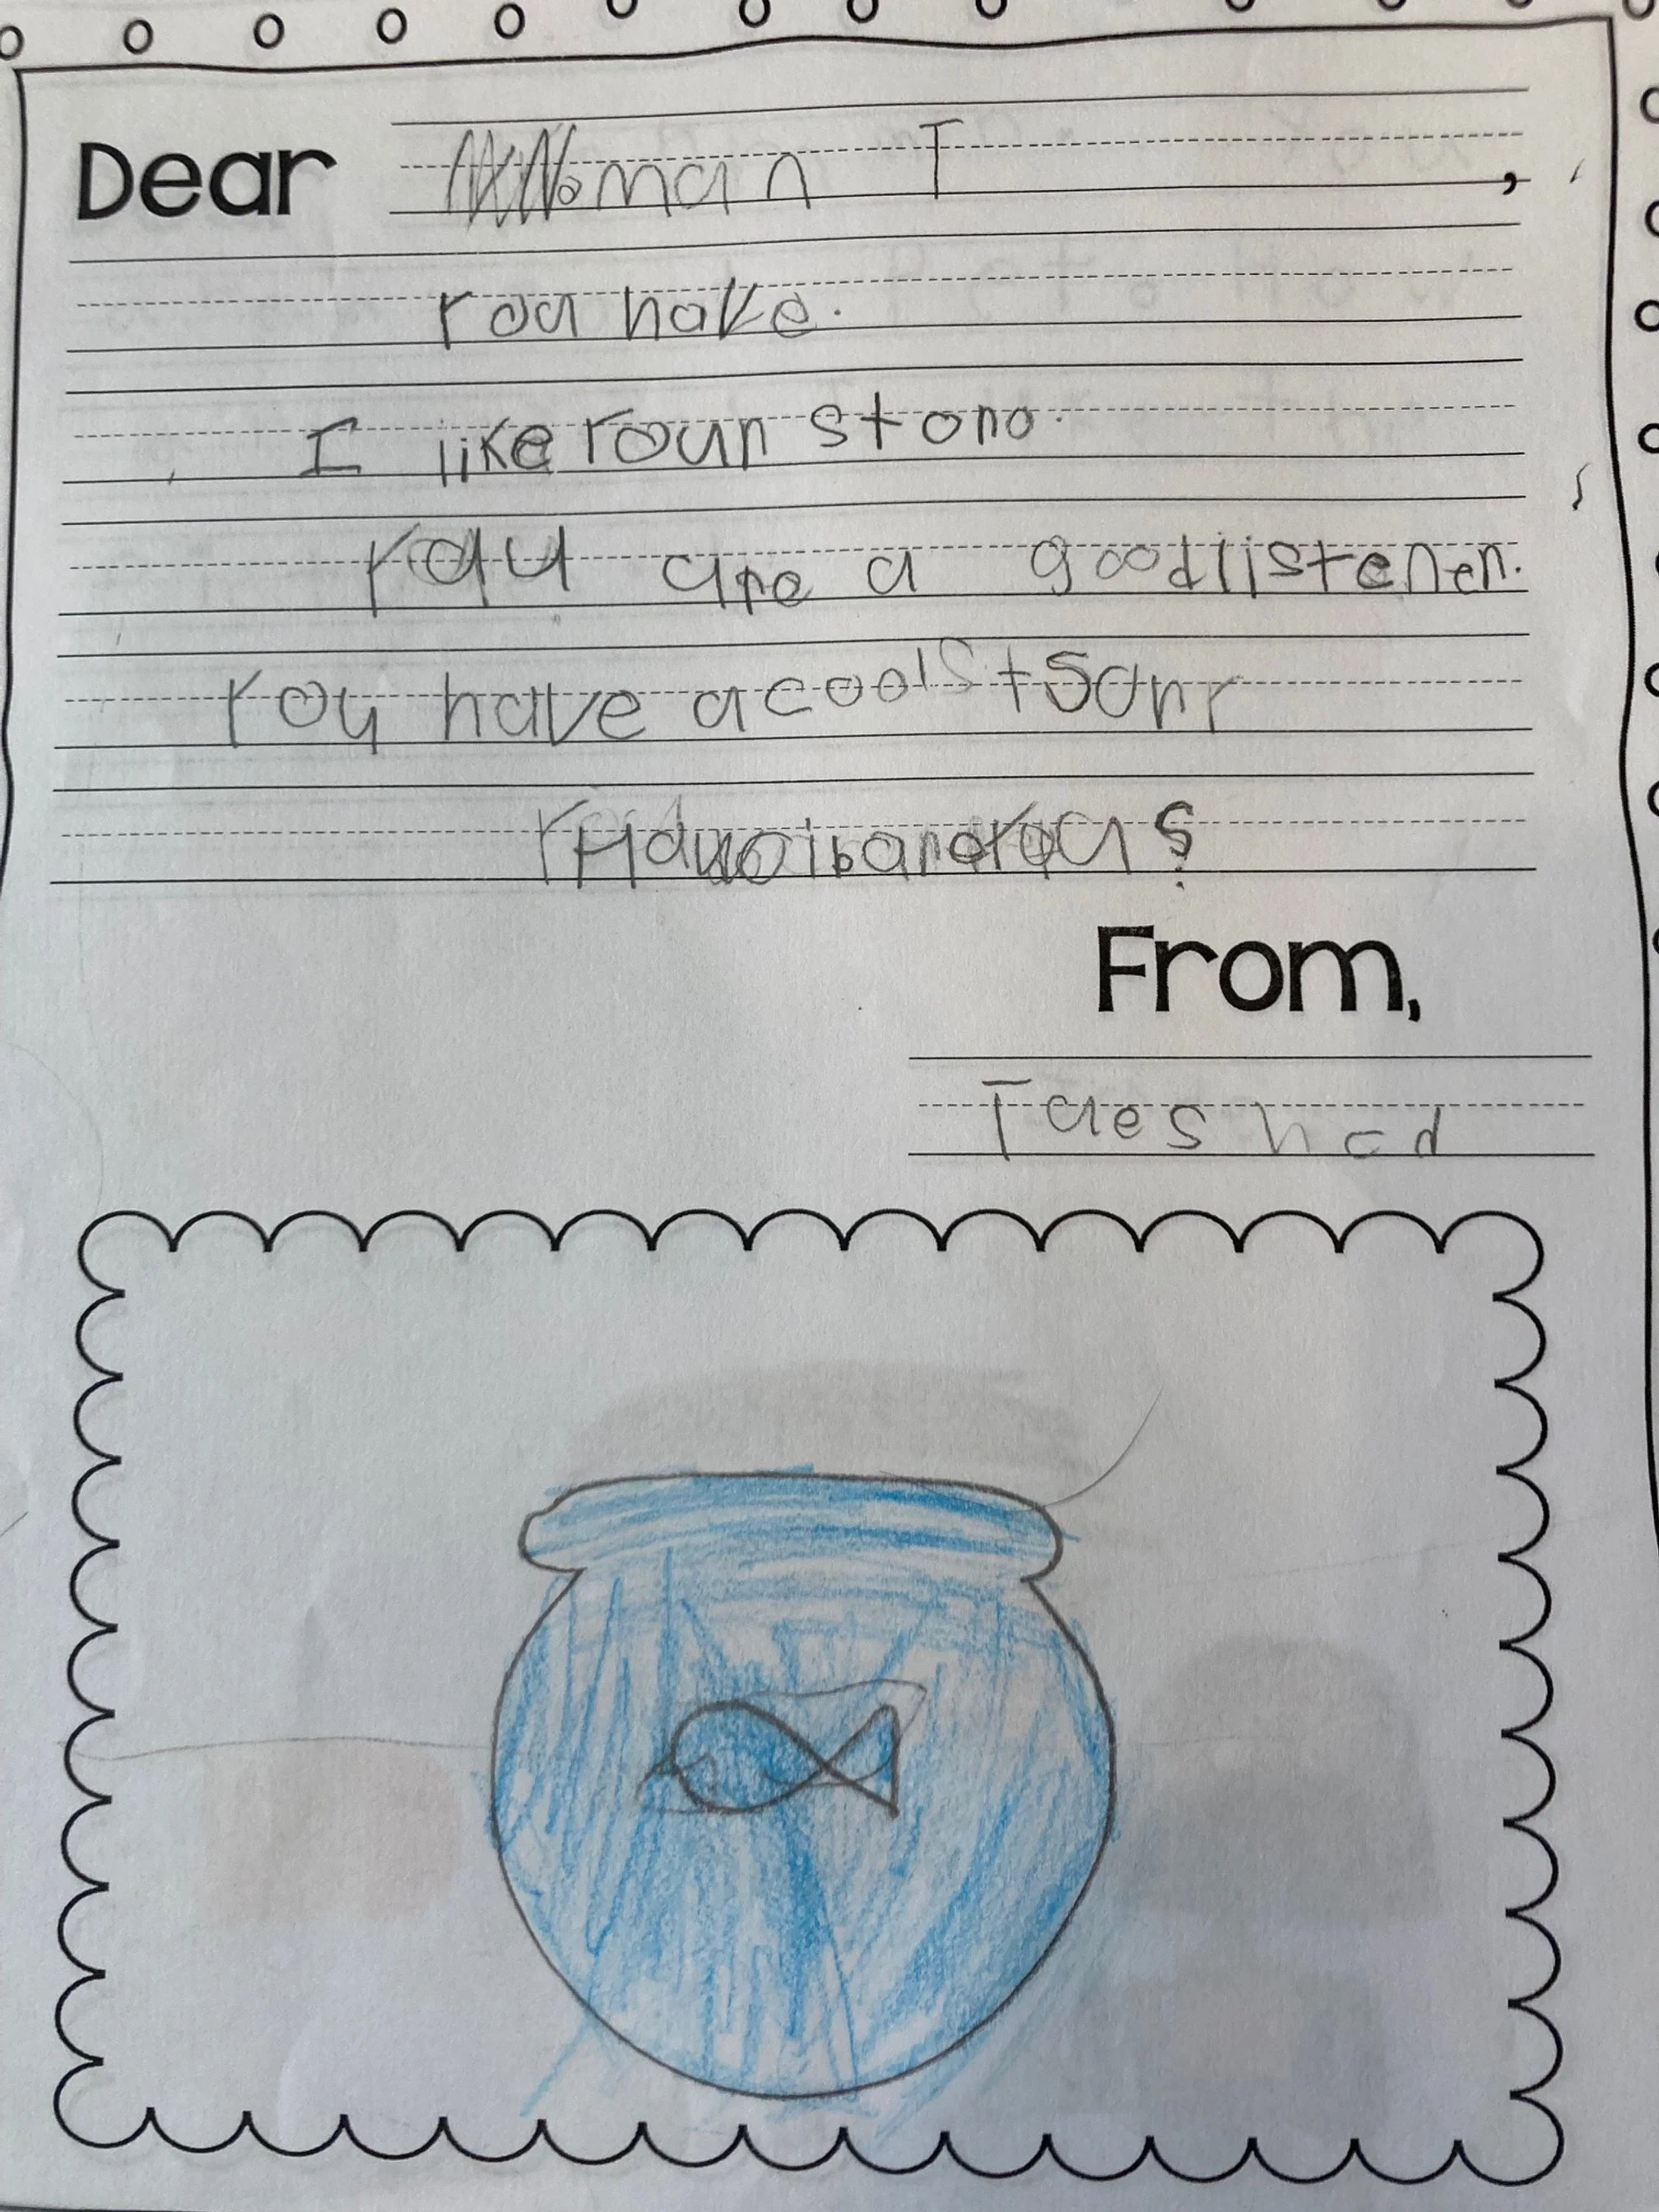 Dear Noman T,
rou have.
I like roun stono.
you are a good listenen.
you have a cool
From,
Taeshad